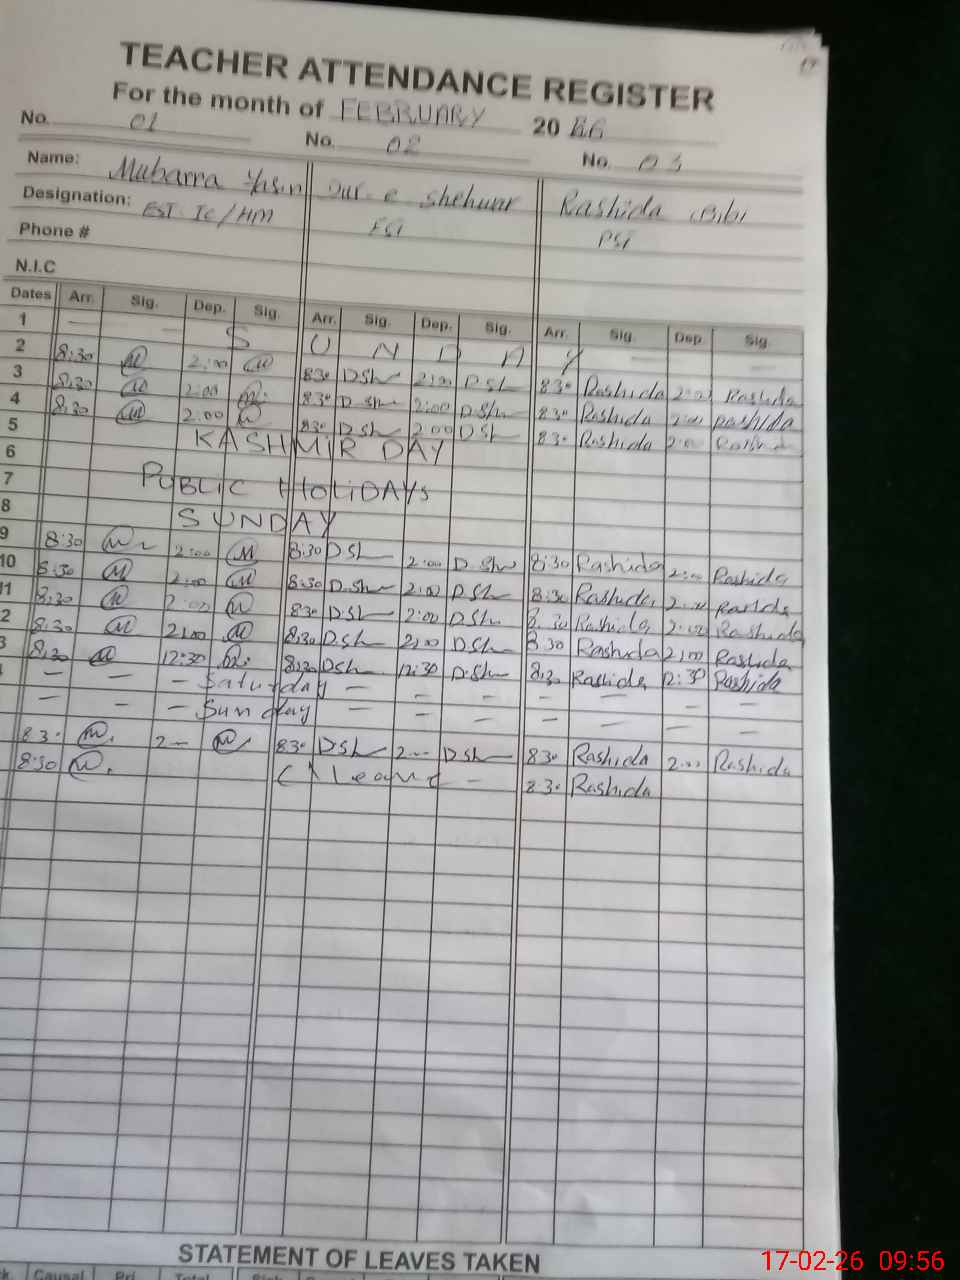 TEACHER ATTENDANCE REGISTER
For the month of FEBRUARY 20 26
No. 01 No. 02 No. 03
Name: Mubarra Yasin Dur e Shehwar Rashida Bibi
Designation: EST IC/HM EST PST
Phone #
N.I.C
Dates Arr. Sig. Dep. Sig. Arr. Sig. Dep. Sig. Arr. Sig. Dep. Sig.
1 S U N D A Y
2 8:30 M 2:00 M 8:30 DSh 2:00 DSh 8:30 Rashida 2:00 Rashida
3 8:30 M 2:00 M 8:30 DSh 2:00 DSh 8:30 Rashida 2:00 Rashida
4 8:30 M 2:00 M 8:30 DSh 2:00 DSh 8:30 Rashida 2:00 Rashida
5 KASHMIR DAY
6
7 PUBLIC HOLIDAYS
8 SUNDAY
9 8:30 M 2:00 M 8:30 DSh 2:00 DSh 8:30 Rashida 2:00 Rashida
10 8:30 M 2:00 M 8:30 DSh 2:00 DSh 8:30 Rashida 2:00 Rashida
11 8:30 M 2:00 M 8:30 DSh 2:00 DSh 8:30 Rashida 2:00 Rashida
2 8:30 M 2:00 M 8:30 DSh 2:00 DSh 8:30 Rashida 2:00 Rashida
3 8:30 M 12:30 M 8:30 DSh 12:30 DSh 8:30 Rashida 12:30 Rashida
— — — Saturday — — — — — — —
— — Sunday — — — — — —
8:30 M 2— M 8:30 DSh 2— DSh 8:30 Rashida 2:00 Rashida
8:30 M C/leave — 8:30 Rashida
STATEMENT OF LEAVES TAKEN
Causal Pri Total
17-02-26 09:56